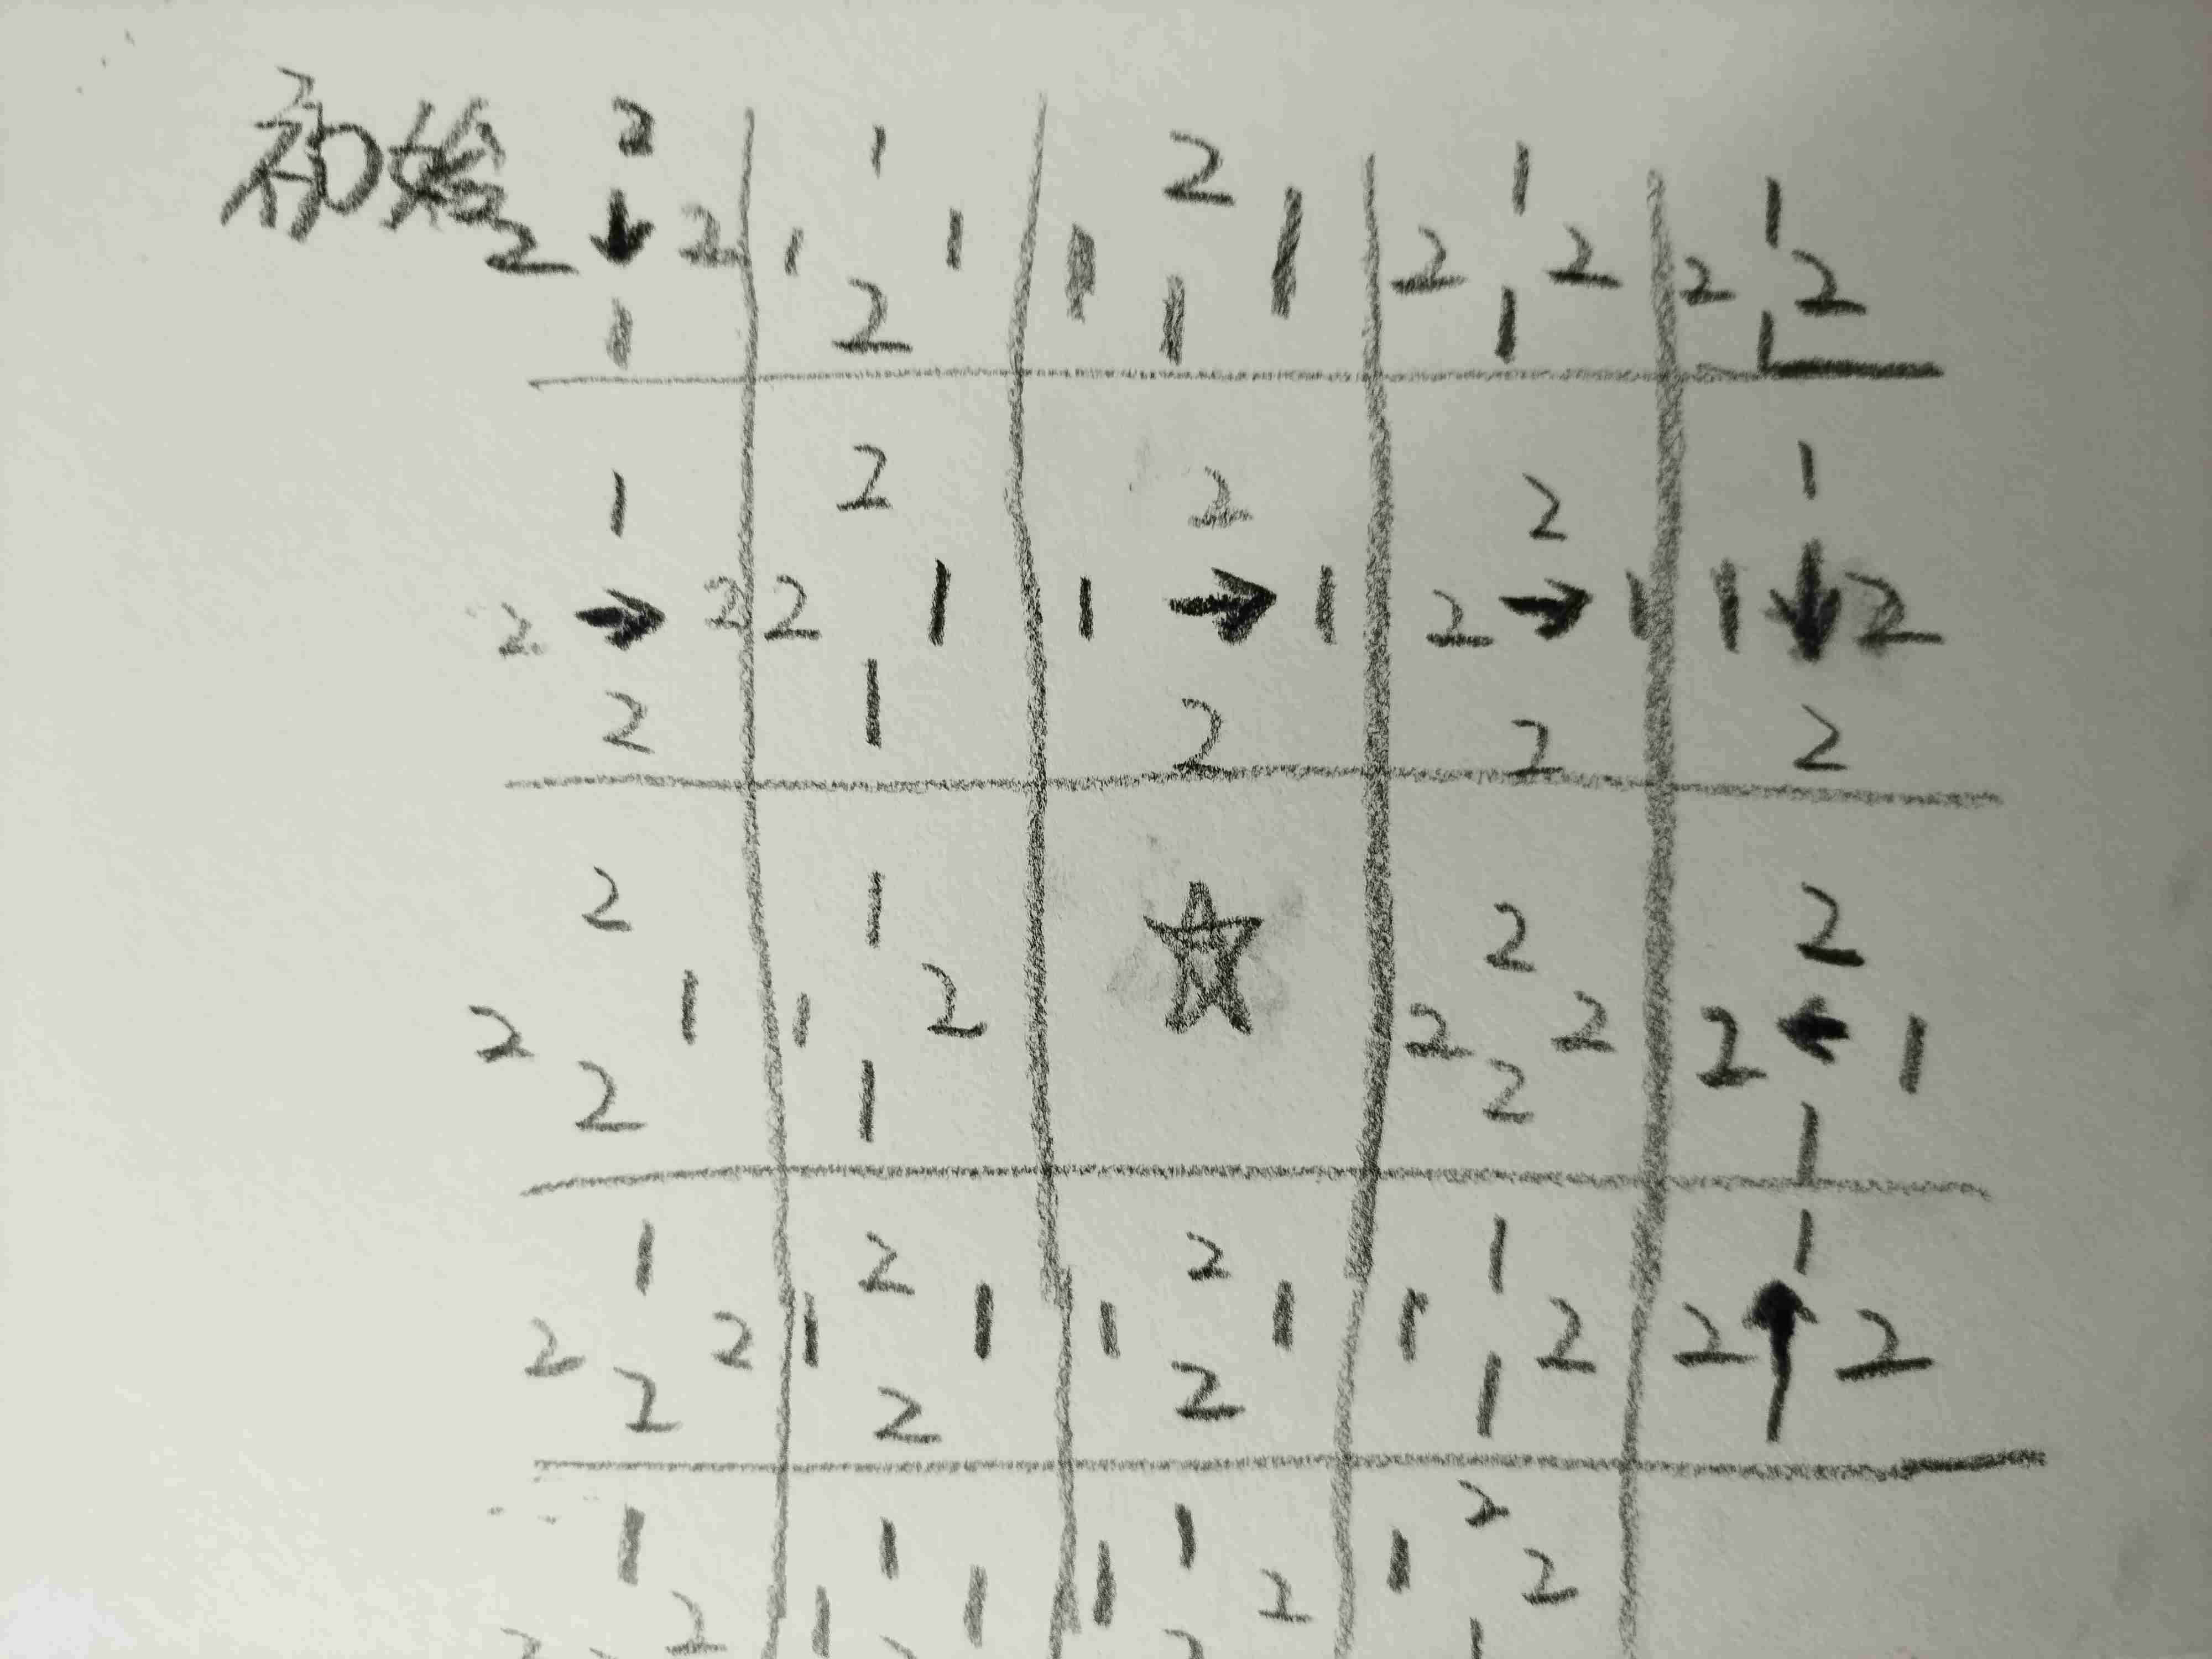 初始
2 1 2 1 1
2 ↓ 2 1 1 1 1 2 2 2 2
1 2 1 1 1
1 2 2 2 1
2 → 2 2 1 1 → 1 2 → 1 1 ↓ 2
2 1 2 2 2
2 1 ☆ 2 2
2 1 1 2 2 2 2 ← 1
2 1 2 1
1 2 2 1 1
2 2 1 1 1 1 1 2 2 ↑ 2
2 2 2 1
1 1 1 2
2 1 1 1 2 1 2
1